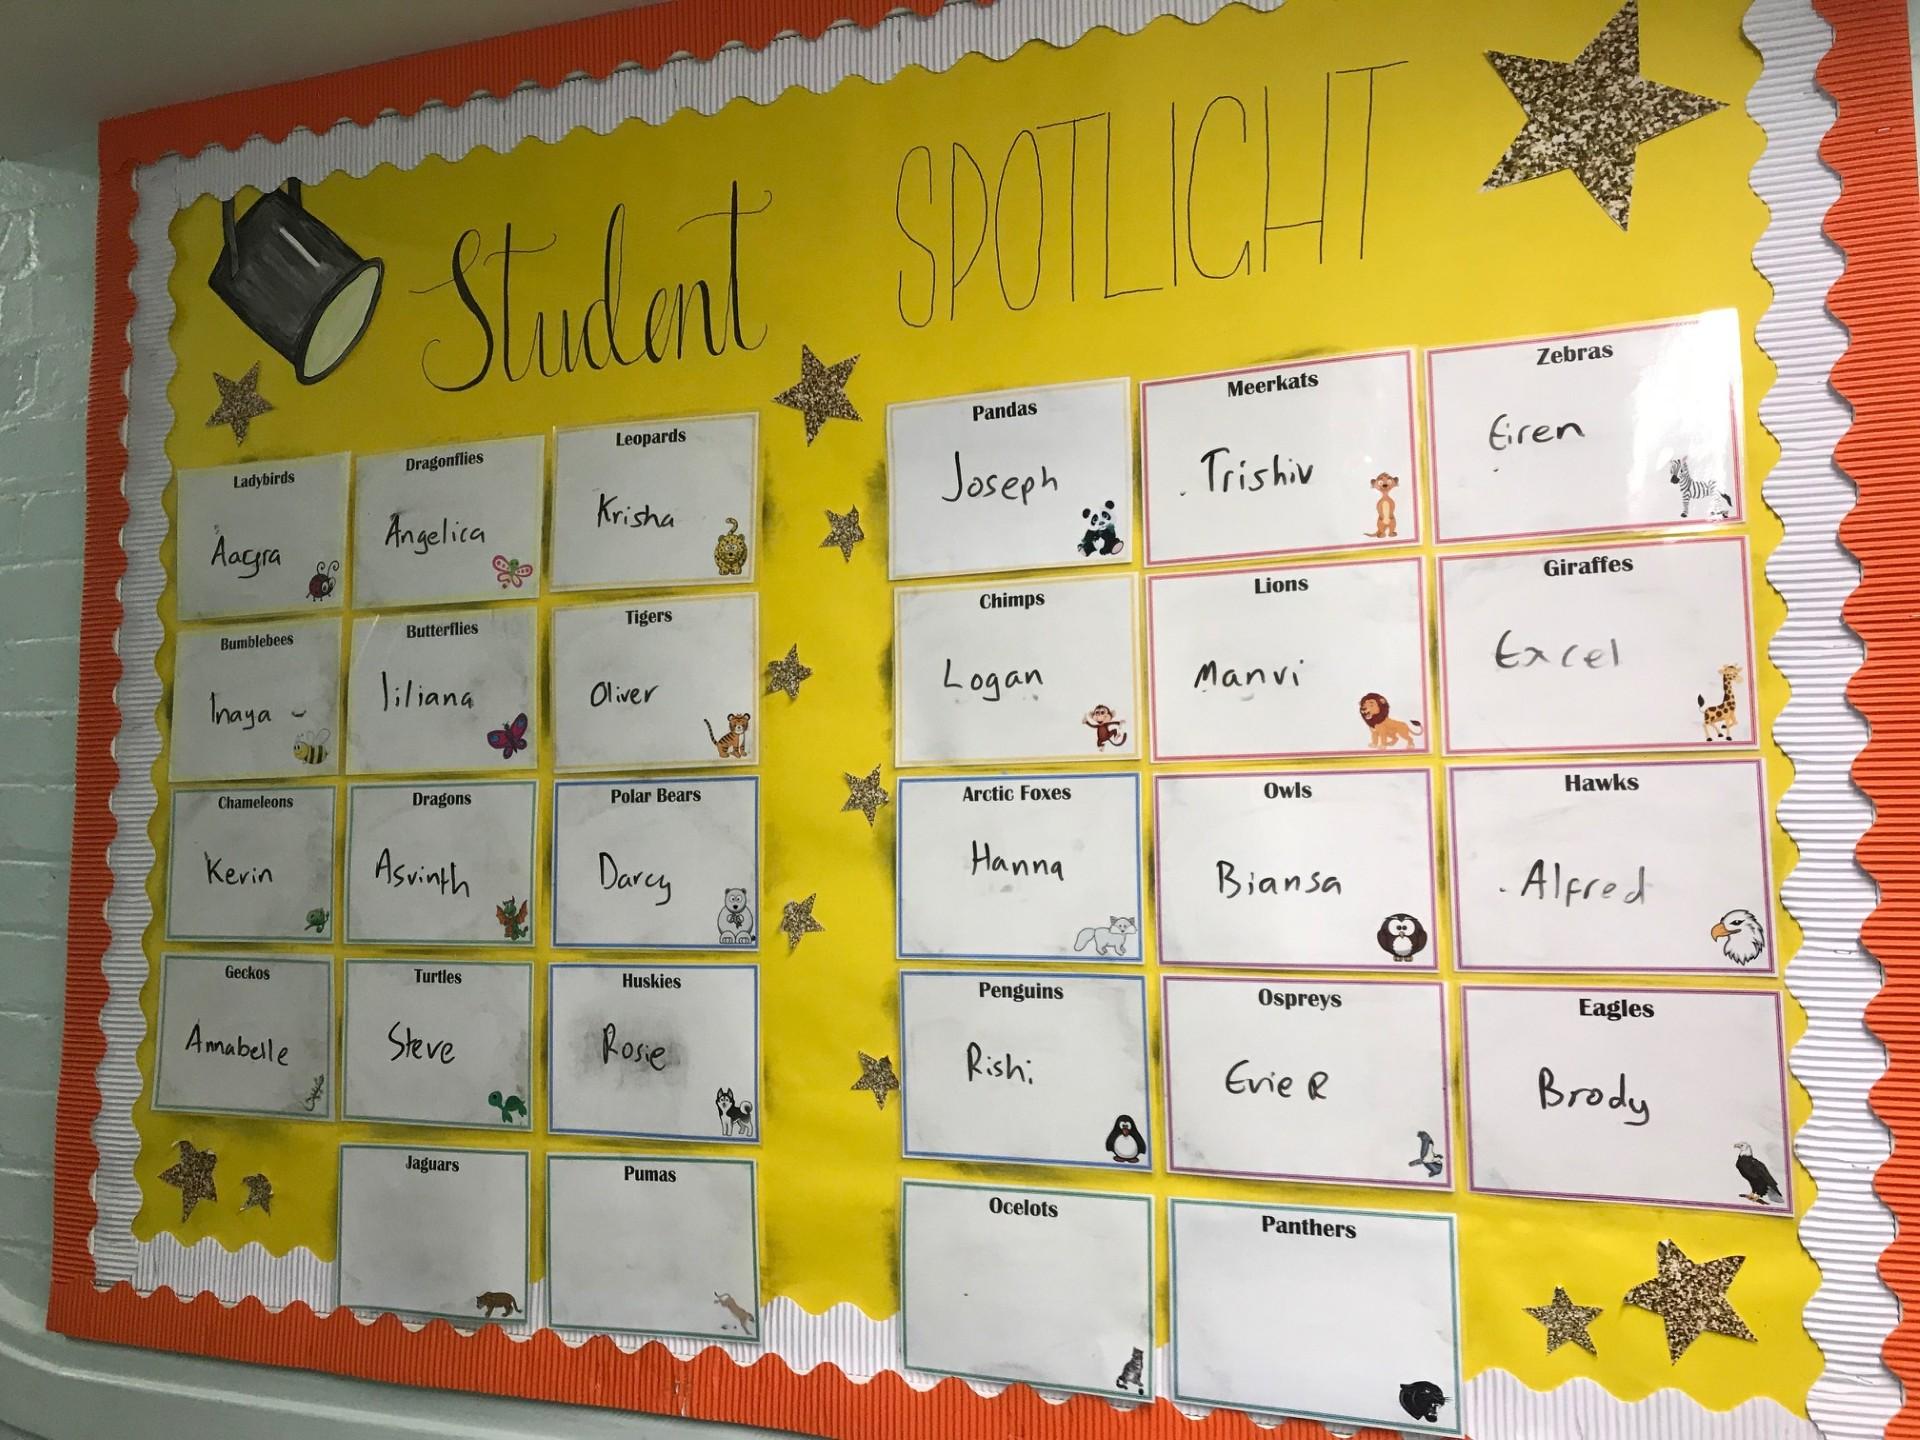 Student SPOTLIGHT
Ladybirds
Aagra
Dragonflies
Angelica
Leopards
Krisha
Bumblebees
Inaya
Butterflies
Iiliana
Tigers
Oliver
Chameleons
Kevin
Dragons
Asvinth
Polar Bears
Darcy
Geckos
Annabelle
Turtles
Steve
Huskies
Rosie
Jaguars
Pumas
Pandas
Joseph
Meerkats
Trishiv
Zebras
Eiren
Chimps
Logan
Lions
Manvi
Giraffes
Excel
Arctic Foxes
Hanna
Owls
Biansa
Hawks
Alfred
Penguins
Rishi
Ospreys
Evie R
Eagles
Brody
Ocelots
Panthers